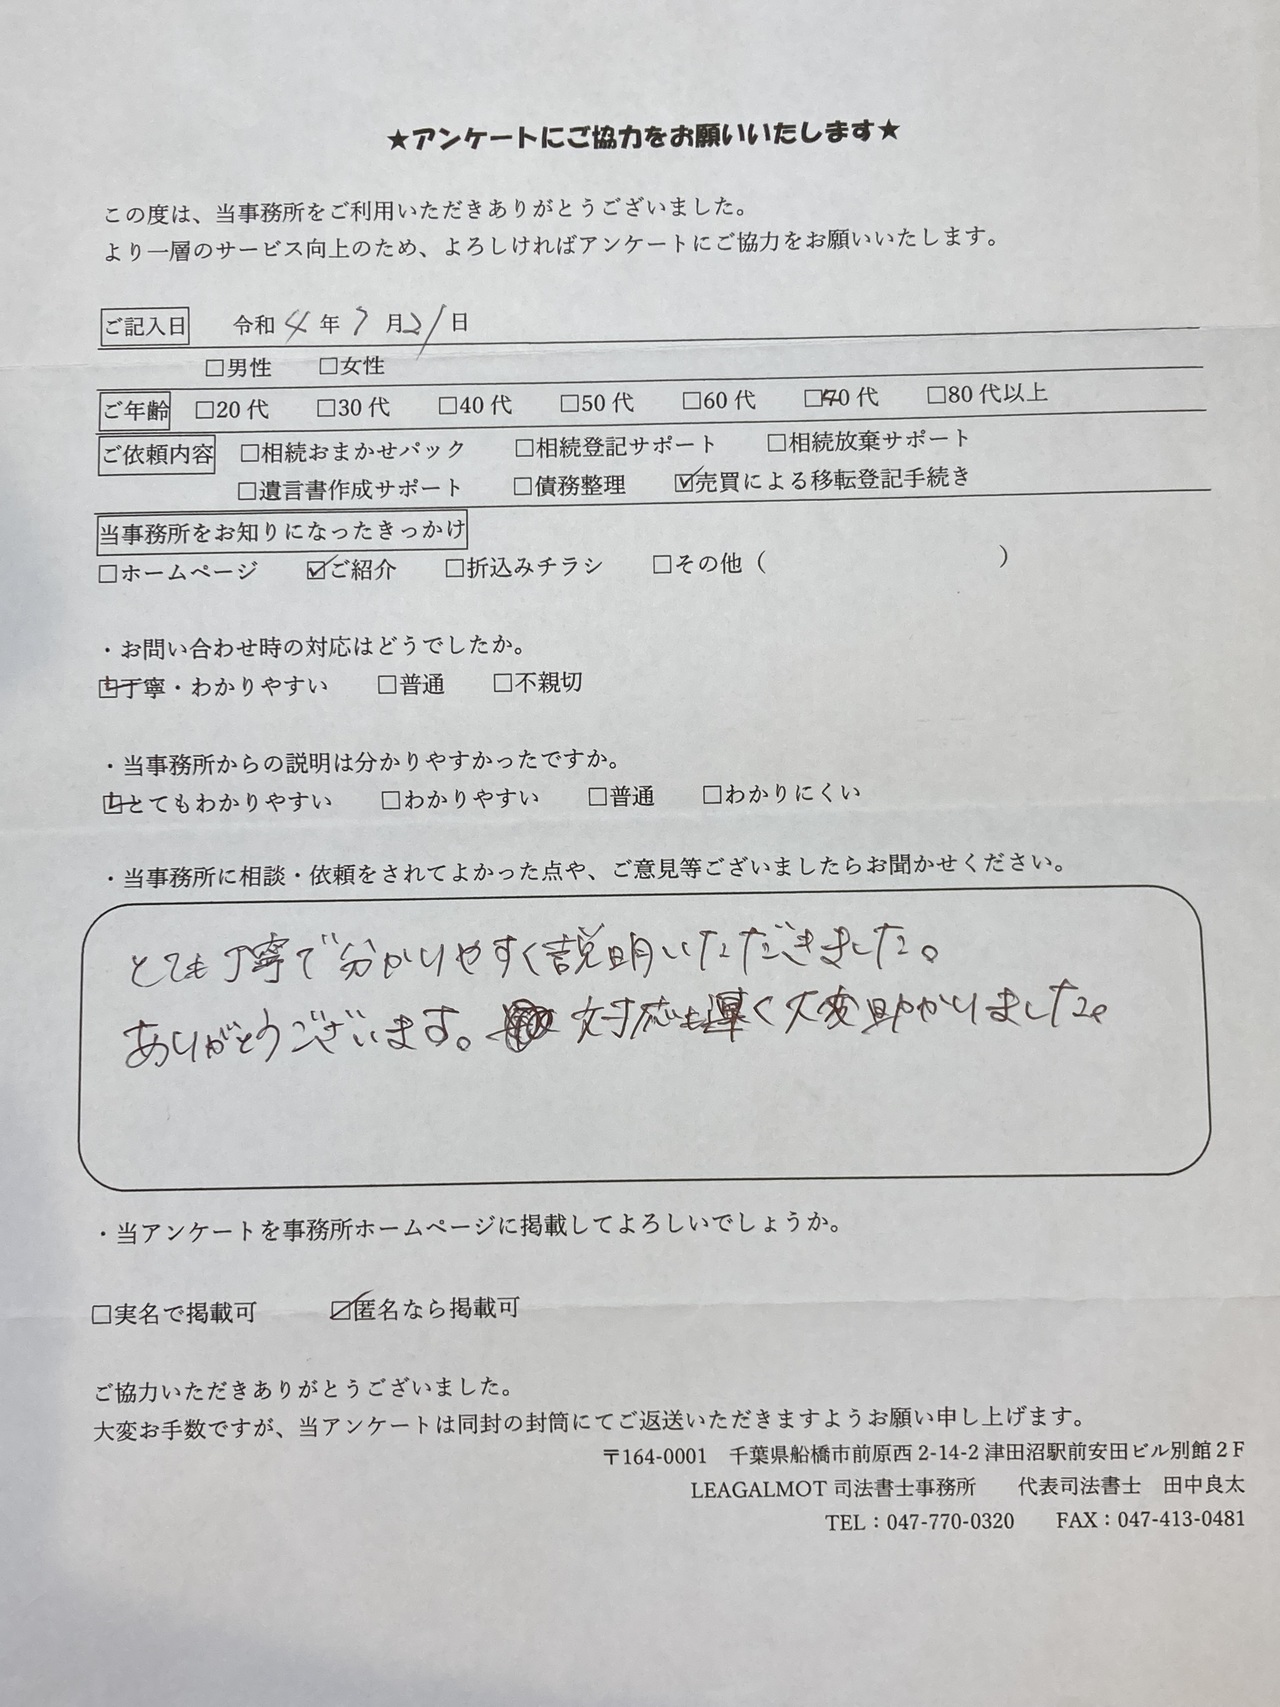 ★アンケートにご協力をお願いいたします★
この度は、当事務所をご利用いただきありがとうございました。
より一層のサービス向上のため、よろしければアンケートにご協力をお願いいたします。
ご記入日 令和 4 年 7 月 21 日
□男性 □女性
ご年齢 □20 代 □30 代 □40 代 □50 代 □60 代 □70 代 □80 代以上
ご依頼内容 □相続おまかせパック □相続登記サポート □相続放棄サポート
□遺言書作成サポート □債務整理 ☑売買による移転登記手続き
当事務所をお知りになったきっかけ
□ホームページ ☑ご紹介 □折込みチラシ □その他（ ）
・お問い合わせ時の対応はどうでしたか。
☑丁寧・わかりやすい □普通 □不親切
・当事務所からの説明は分かりやすかったですか。
☑とてもわかりやすい □わかりやすい □普通 □わかりにくい
・当事務所に相談・依頼をされてよかった点や、ご意見等ございましたらお聞かせください。
とても丁寧で分かりやすく説明いただきました。
ありがとうございます。 対応も く大変助かりました。
・当アンケートを事務所ホームページに掲載してよろしいでしょうか。
□実名で掲載可 ☑匿名なら掲載可
ご協力いただきありがとうございました。
大変お手数ですが、当アンケートは同封の封筒にてご返送いただきますようお願い申し上げます。
〒164-0001 千葉県船橋市前原西 2-14-2 津田沼駅前安田ビル別館２F
LEAGALMOT 司法書士事務所 代表司法書士 田中良太
TEL：047-770-0320 FAX：047-413-0481